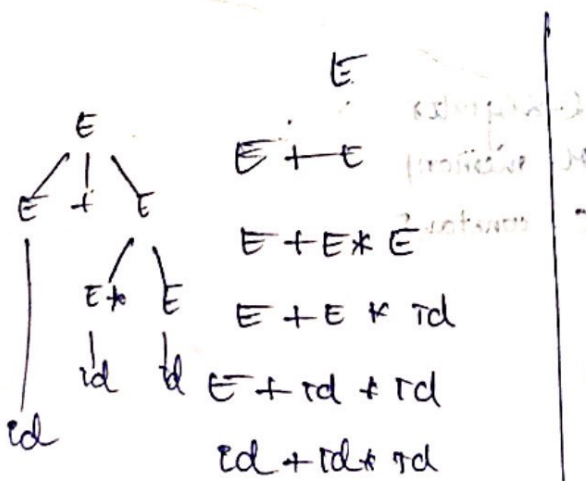 E
E + E
E * E
id id
id
E
E + E
E + E * E
E + E * id
E + id * id
id + id * id